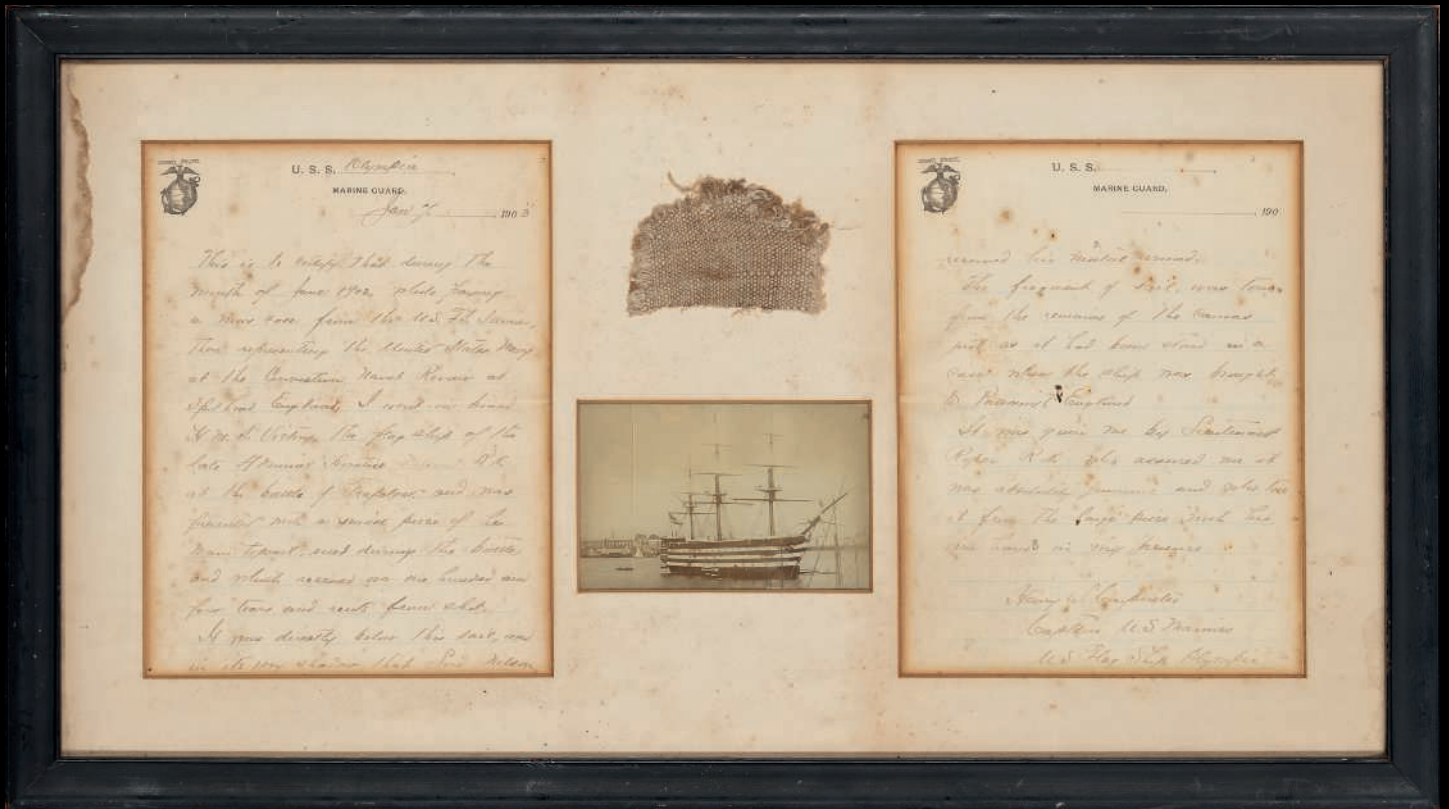 U. S. S. Olympia
MARINE GUARD,
Jan 7 1903
This is to certify that during the
month of June 1902, while
a from the U.S.
then representing the United States Navy
at the Naval Review at
Spithead England, I went on board
H.M.S. Victory, the flag ship of the
late Admiral
at the battle of Trafalgar and was
presented with a piece of her
main topsail used during the battle
and which received one hundred and
four tears and rents from shot.
It was directly below this sail, and
in its very shadow that Lord Nelson
U. S. S.
MARINE GUARD,
190
received his mortal wound.
The fragment of sail, was torn
from the remains of the canvas
just as it had been stored in a
case when the ship was brought
to England
It was given me by Lieutenant
Roper R.N. who assured me it
was absolutely genuine and who tore
it from the large piece with his
own hands in my presence
Henry Carpenter
Captain U.S. Marines
U.S. Flag Ship Olympia